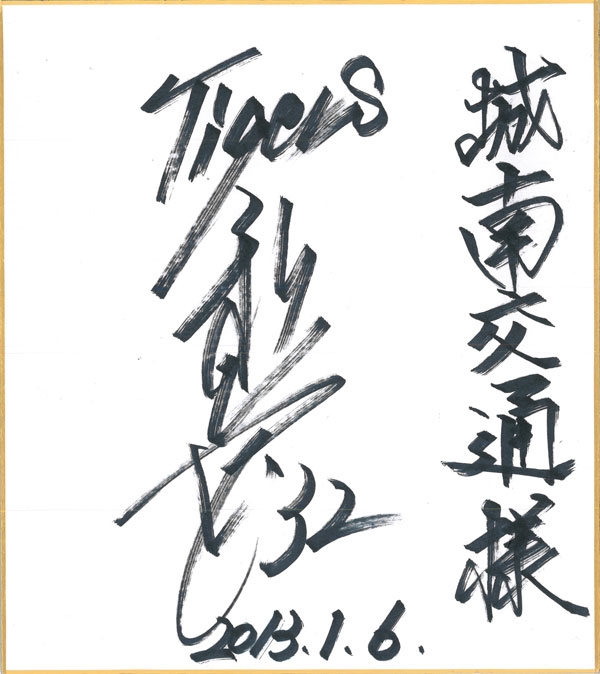 城南交通様
Tigers
32
2013.1.6.